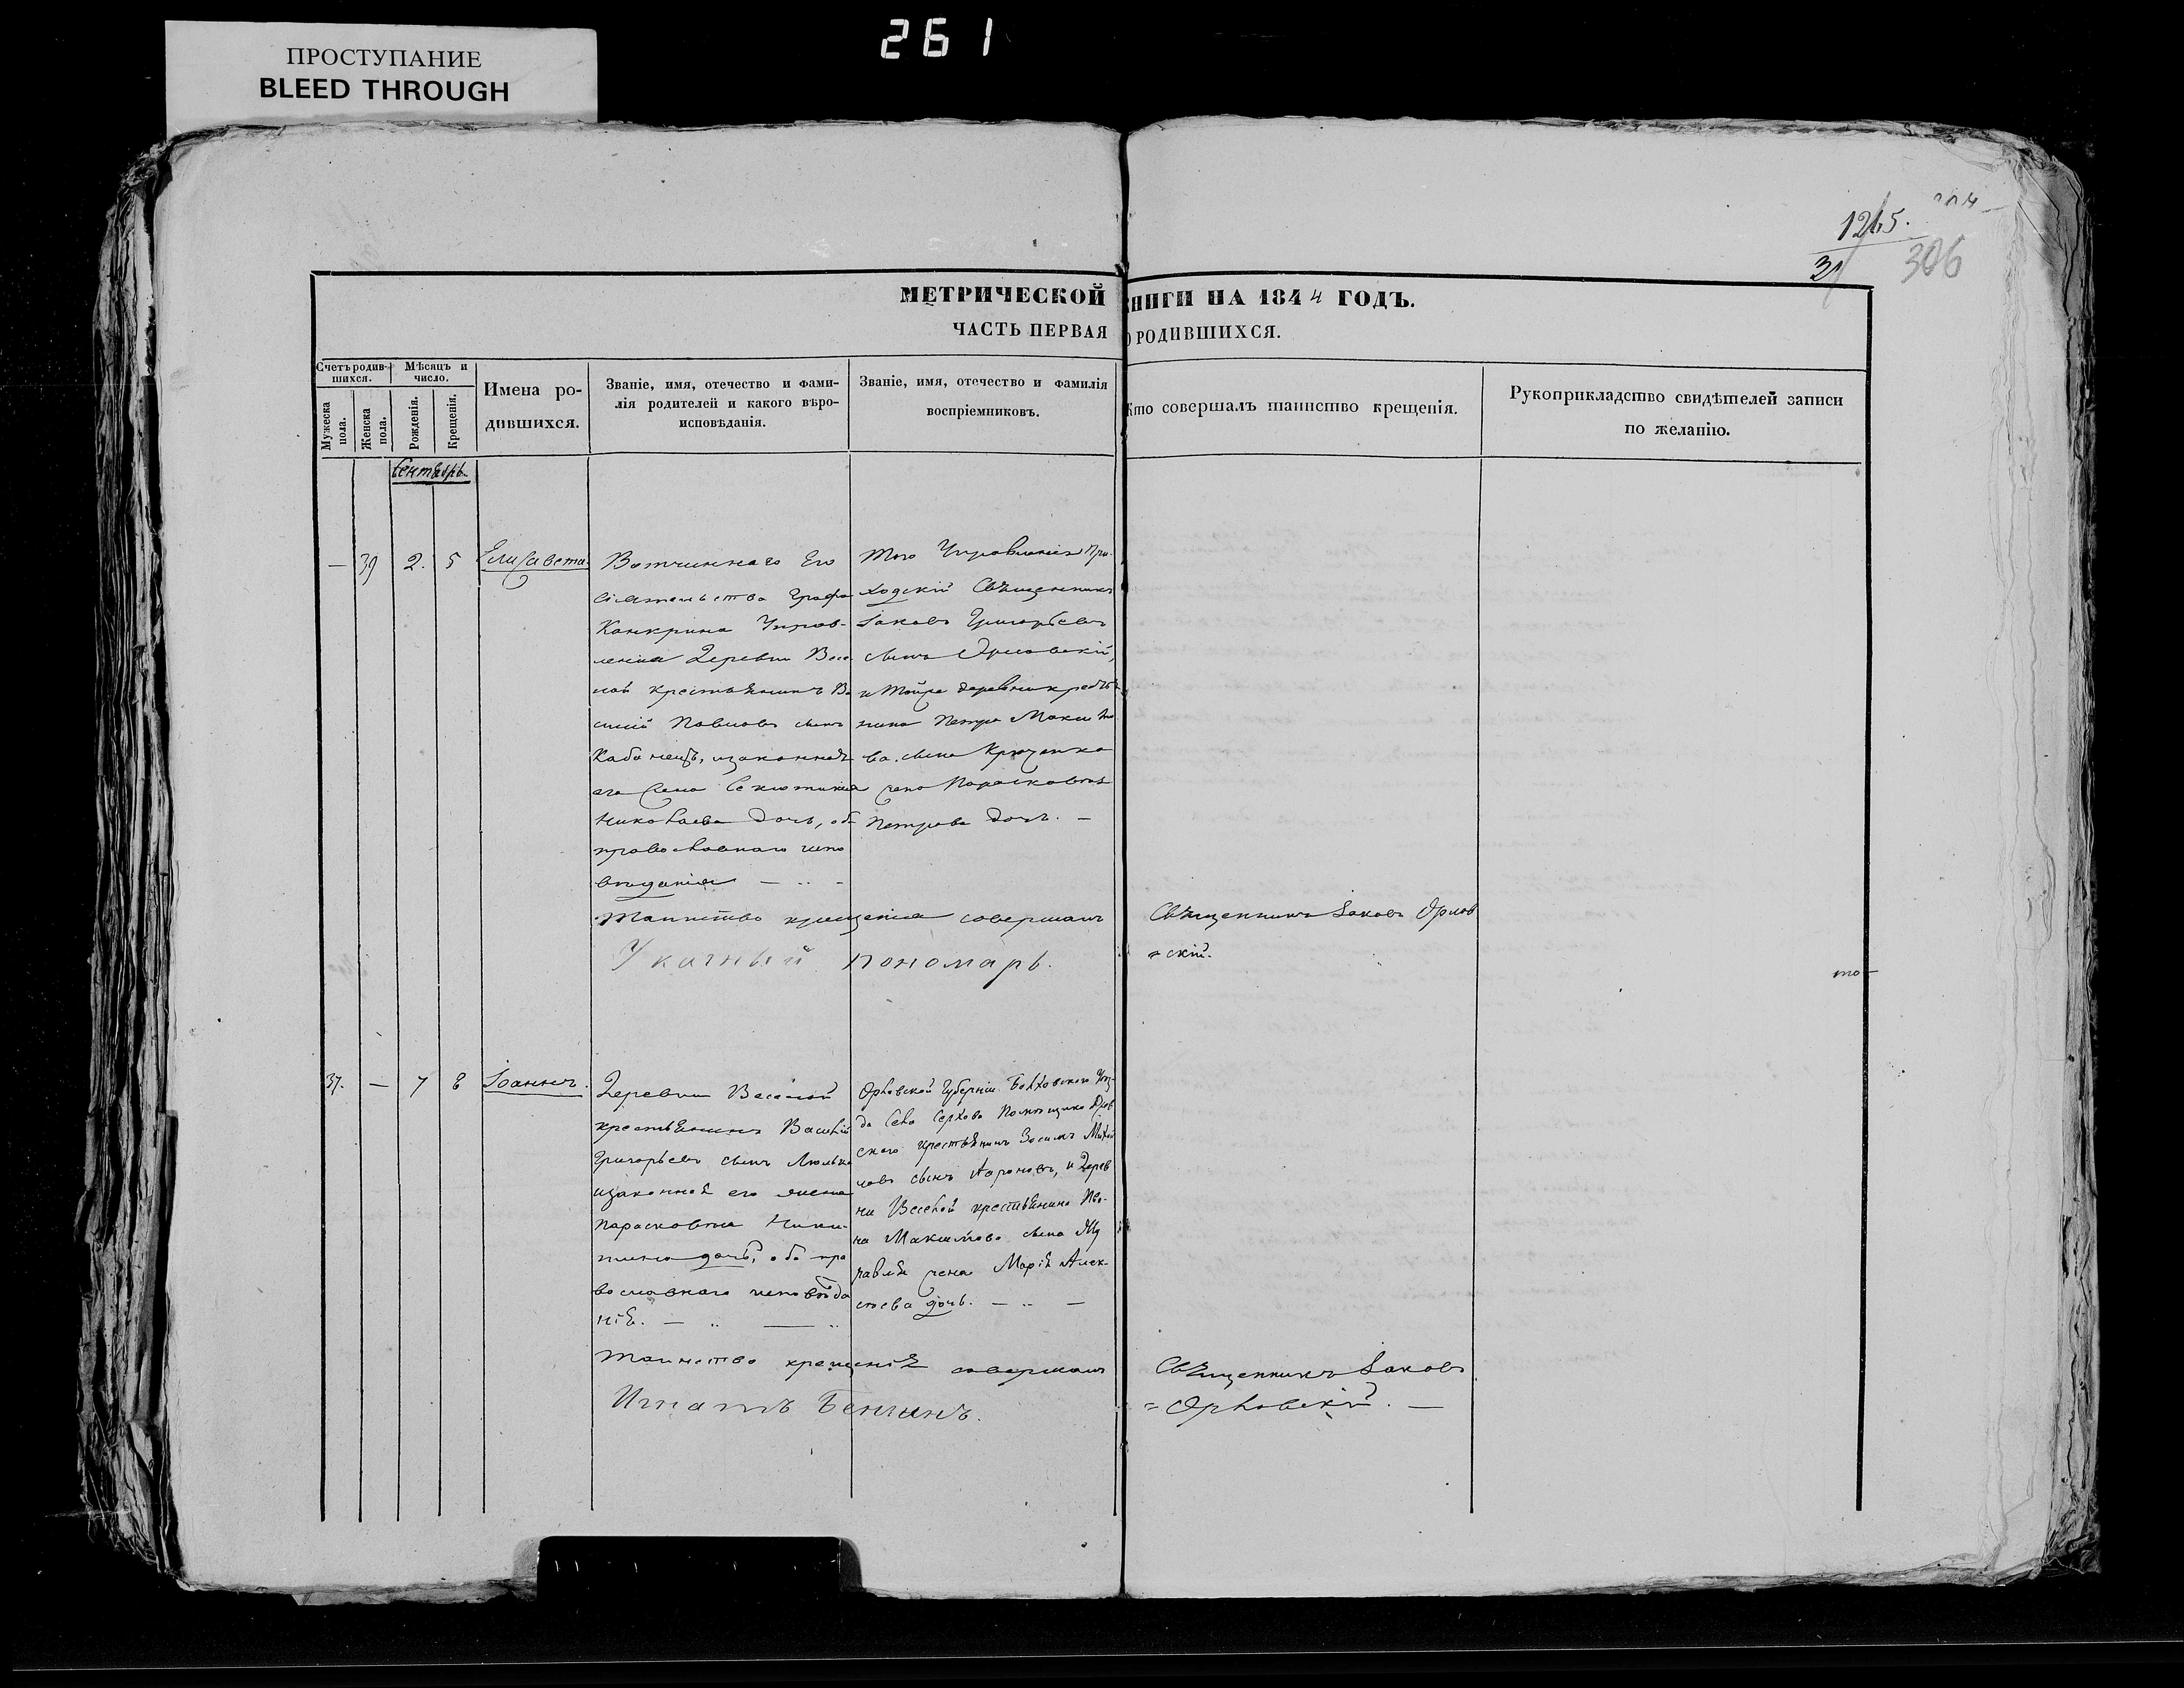 261
ПРОСТУПАНИЕ
BLEED THROUGH
1265.
31
306
МЕТРИЧЕСКОЙ КНИГИ НА 1844 ГОДЪ.
ЧАСТЬ ПЕРВАЯ О РОДИВШИХСЯ.
Счетъ родив-
шихся.
Мужеска
пола.
Женска
пола.
Мѣсяцъ и
число.
Рожденія.
Крещенія.
Имена ро-
дившихся.
Званіе, имя, отечество и фами-
лія родителей и какого вѣро-
исповѣданія.
Званіе, имя, отечество и фамилія
воспріемниковъ.
Кто совершалъ таинство крещенія.
Рукоприкладство свидѣтелей записи
по желанію.
Сентябрь
— 39 2. 5 Елисавета
Вотчиннаго Его
сіятельства Графа
Канкрина Управ-
ленія Деревни Весе
лой крестьянинъ Ва
силій Павловъ сынъ
Кабанецъ, изаконная
его жена
Николаева дочь, оба
православнаго испо
вѣданія — .. -
Того Управленія При-
ходскій Священникъ
Іаковъ Григорьевъ
сынъ Орловскій,
и тойже деревни крестья
нина Петра Макси мо
ва сына Крюченка
жена Парасковія
Петрова дочь. —
Таинство крещенія совершалъ
Священникъ Іаковъ Орлов
= скій.
Указный пономарь.
то —
37. — 7 8 Іоаннъ.
Деревни Веселой
крестьянинъ Василій
Григорьевъ сынъ Люлька
изаконная его жена
Парасковія Ники-
тина дочь, оба пра
вославнаго исповѣда
нія. — .. — ..
Орловской Губерніи Болховского Уѣз-
да Села Помѣщика
скаго крестьянинъ Зосимъ Михай
ловъ сынъ Ароновъ, и Дерев
ни Веселой крестьянина Ива-
на Максимова сына Жу
равля жена Марія Алек-
сѣева дочь. — .. —
Таинство крещенія совершалъ
Священникъ Іаковъ
= Орловскій. —
Игнатъ Бенчинъ.